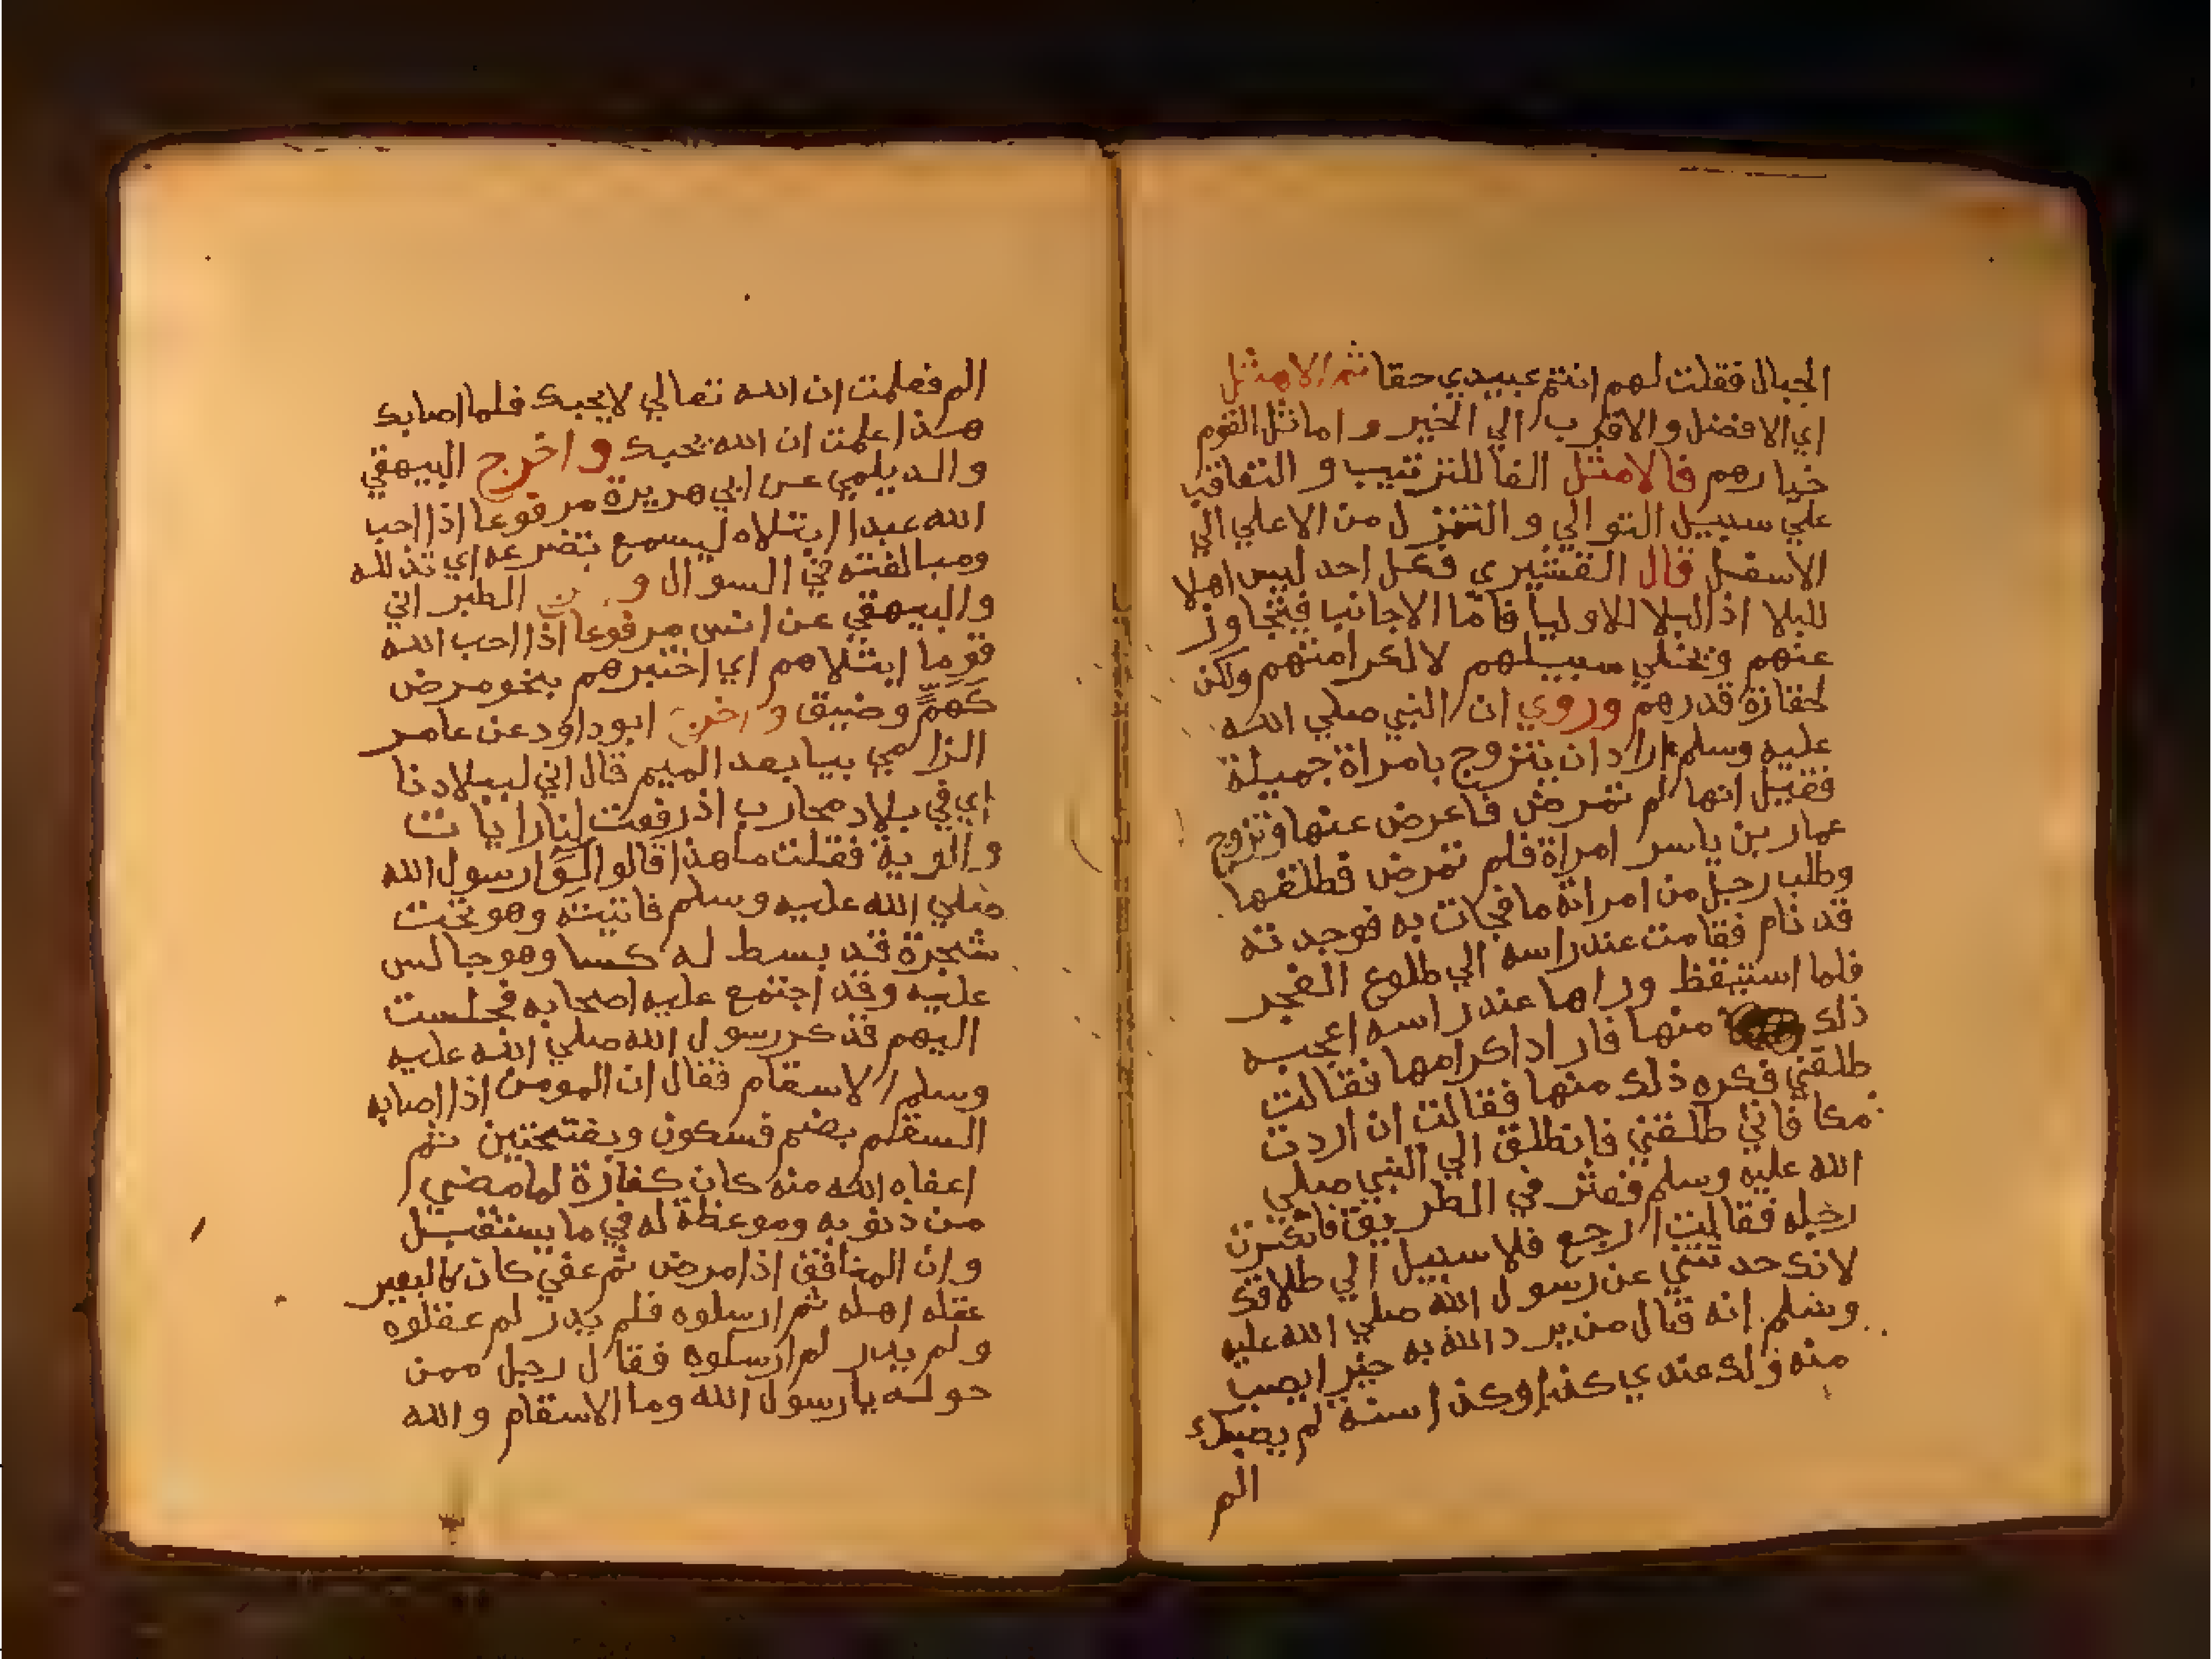 الجبال فقلت لهم انتم عبيدي حقا ثم الامثل
اي الافضل والاقرب الي الخير واماثل القوم
خيارهم فالامثل الفا للترتيب والتعاقب
علي سبيل التوالي والتنزل من الاعلي الي
الاسفل قال القشيري فكل احد ليس اهلا
للبلا اذ البلا للاوليا فاما الاجانب فيتجاوز
عنهم ويخلي سبيلهم لا لكرامتهم ولكن
لحقارة قدرهم وروي ان النبي صلي الله
عليه وسلم اراد ان يتزوج بامراة جميلة
فقيل انها لم تمرض فاعرض عنها وتزوج
عمار بن ياسر امراة فلم تمرض فطلقها
وطلب رجل من امراته ما فجات به فوجدته
قد نام فقامت عند راسه الي طلوع الفجر
فلما استيقظ وراها عند راسه اعجبه
ذلك منها فاراد اكرامها فقالت
طلقني فكره ذلك منها فقالت ان اردت
مكافاتي طلقني فانطلق الي النبي صلي
الله عليه وسلم فعثر في الطريق فانكسرت
رجله فقالت ارجع فلا سبيل الي طلاقك
لانك حدثتني عن رسول الله صلي الله عليه
وسلم انه قال من يرد الله به خيرا يصب
منه ولك عندي كذا وكذا سنة لم يصبك
الم
الم فعلمت ان الله تعالي لا يحبك فلما اصابك
هذا علمت ان الله يحبك واخرج البيهقي
والديلمي عن ابي هريرة مرفوعا اذا احب
الله عبدا ابتلاه ليسمع تضرعه اي تذلله
ومبالغته في السوال و الطبراني
والبيهقي عن انس مرفوعا اذا احب الله
قوما ابتلاهم اي اختبرهم بنحو مرض
كهم وضيق واخرج ابو داود عن عامر
الرامي بيا بعد الميم قال اني لببلادنا
اي في بلاد محارب اذ رفعت لنا رايات
والوية فقلت ما هذا قالوا لوا رسول الله
صلي الله عليه وسلم فاتيته وهو تحت
شجرة قد بسط له كسا وهو جالس
عليه وقد اجتمع عليه اصحابه فجلست
اليهم فذكر رسول الله صلي الله عليه
وسلم الاسقام فقال ان المومن اذا اصابه
السقم بضم فسكون وبفتحتين ثم
اعفاه الله منه كان كفارة لما مضي
من ذنوبه وموعظة له في ما يستقبل
وان المنافق اذا مرض ثم عفي كان كالبعير
عقله اهله ثم ارسلوه فلم يدر لم عقلوه
ولم يدر لم ارسلوه فقال رجل ممن
حوله يا رسول الله وما الاسقام والله